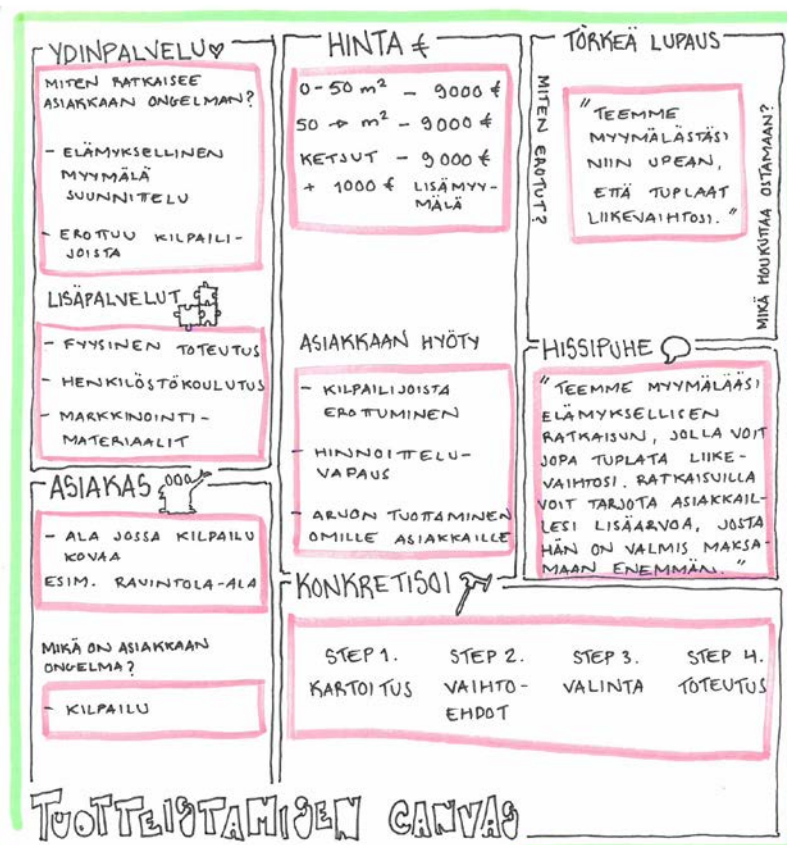 YDINPALVELU
MITEN RATKAISEE
ASIAKKAAN ONGELMAN?
- ELÄMYKSELLINEN
MYYMÄLÄ
SUUNNITTELU
- EROTTUU KILPAILI-
JOISTA
LISÄPALVELUT
- FYYSINEN TOTEUTUS
- HENKILÖSTÖKOULUTUS
- MARKKINOINTI-
MATERIAALIT
ASIAKAS
- ALA JOSSA KILPAILU
KOVAA
ESIM. RAVINTOLA-ALA
MIKÄ ON ASIAKKAAN
ONGELMA?
- KILPAILU
HINTA €
0-50 m² - 9000 €
50 → m² - 9000 €
KETJUT - 9000 €
+ 1000 € LISÄMYY-
MÄLÄ
ASIAKKAAN HYÖTY
- KILPAILIJOISTA
EROTTUMINEN
- HINNOITTELU-
VAPAUS
- ARVON TUOTTAMINEN
OMILLE ASIAKKAILLE
TÖRKEÄ LUPAUS
MITEN EROTUT?
"TEEMME
MYYMÄLÄSTÄSI
NIIN UPEAN,
ETTÄ TUPLAAT
LIIKEVAIHTOSI."
MIKÄ HOUKUTTAA OSTAMAAN?
HISSIPUHE
"TEEMME MYYMÄLÄÄSI
ELÄMYKSELLISEN
RATKAISUN, JOLLA VOIT
JOPA TUPLATA LIIKE-
VAIHTOSI. RATKAISUILLA
VOIT TARJOTA ASIAKKAIL-
LESI LISÄARVOA, JOSTA
HÄN ON VALMIS MAKSA-
MAAN ENEMMÄN."
KONKRETISOI
STEP 1. STEP 2. STEP 3. STEP 4.
KARTOITUS VAIHTO- VALINTA TOTEUTUS
EHDOT
TUOTTEISTAMISEN CANVAS